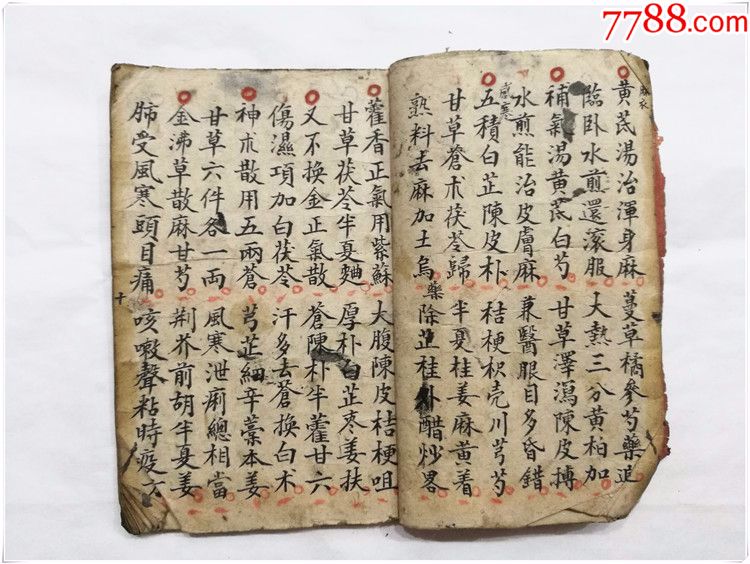 7788.com
麻衣
黃芪湯治渾身麻 蔓草橘參芍藥追
臨卧水煎還滾服 大熱三分黃柏加
補氣湯黃芪白芍 甘草澤瀉陳皮摶
水煎能治皮膚麻 兼醫眼目多昏錯
感寒
五積白芷陳皮朴 桔梗枳壳川芎芍
甘草蒼朮茯苓歸 半夏桂姜麻黃着
熟料去麻加土烏藥 除芷桂外醋炒畧
藿香正氣用紫蘇 大腹陳皮桔梗咀
甘草茯苓半夏麯 厚朴白芷枣姜扶
又不換金正氣散 蒼陳朴半藿甘六
傷濕項加白茯苓 汗多去蒼換白朮
神朮散用五兩蒼 芎芷細辛藁本姜
甘草六件各一両 風寒泄痢總相當
金沸草散麻甘芍 荆芥前胡半夏姜
肺受風寒頭目痛 咳嗽聲粘時疫
十